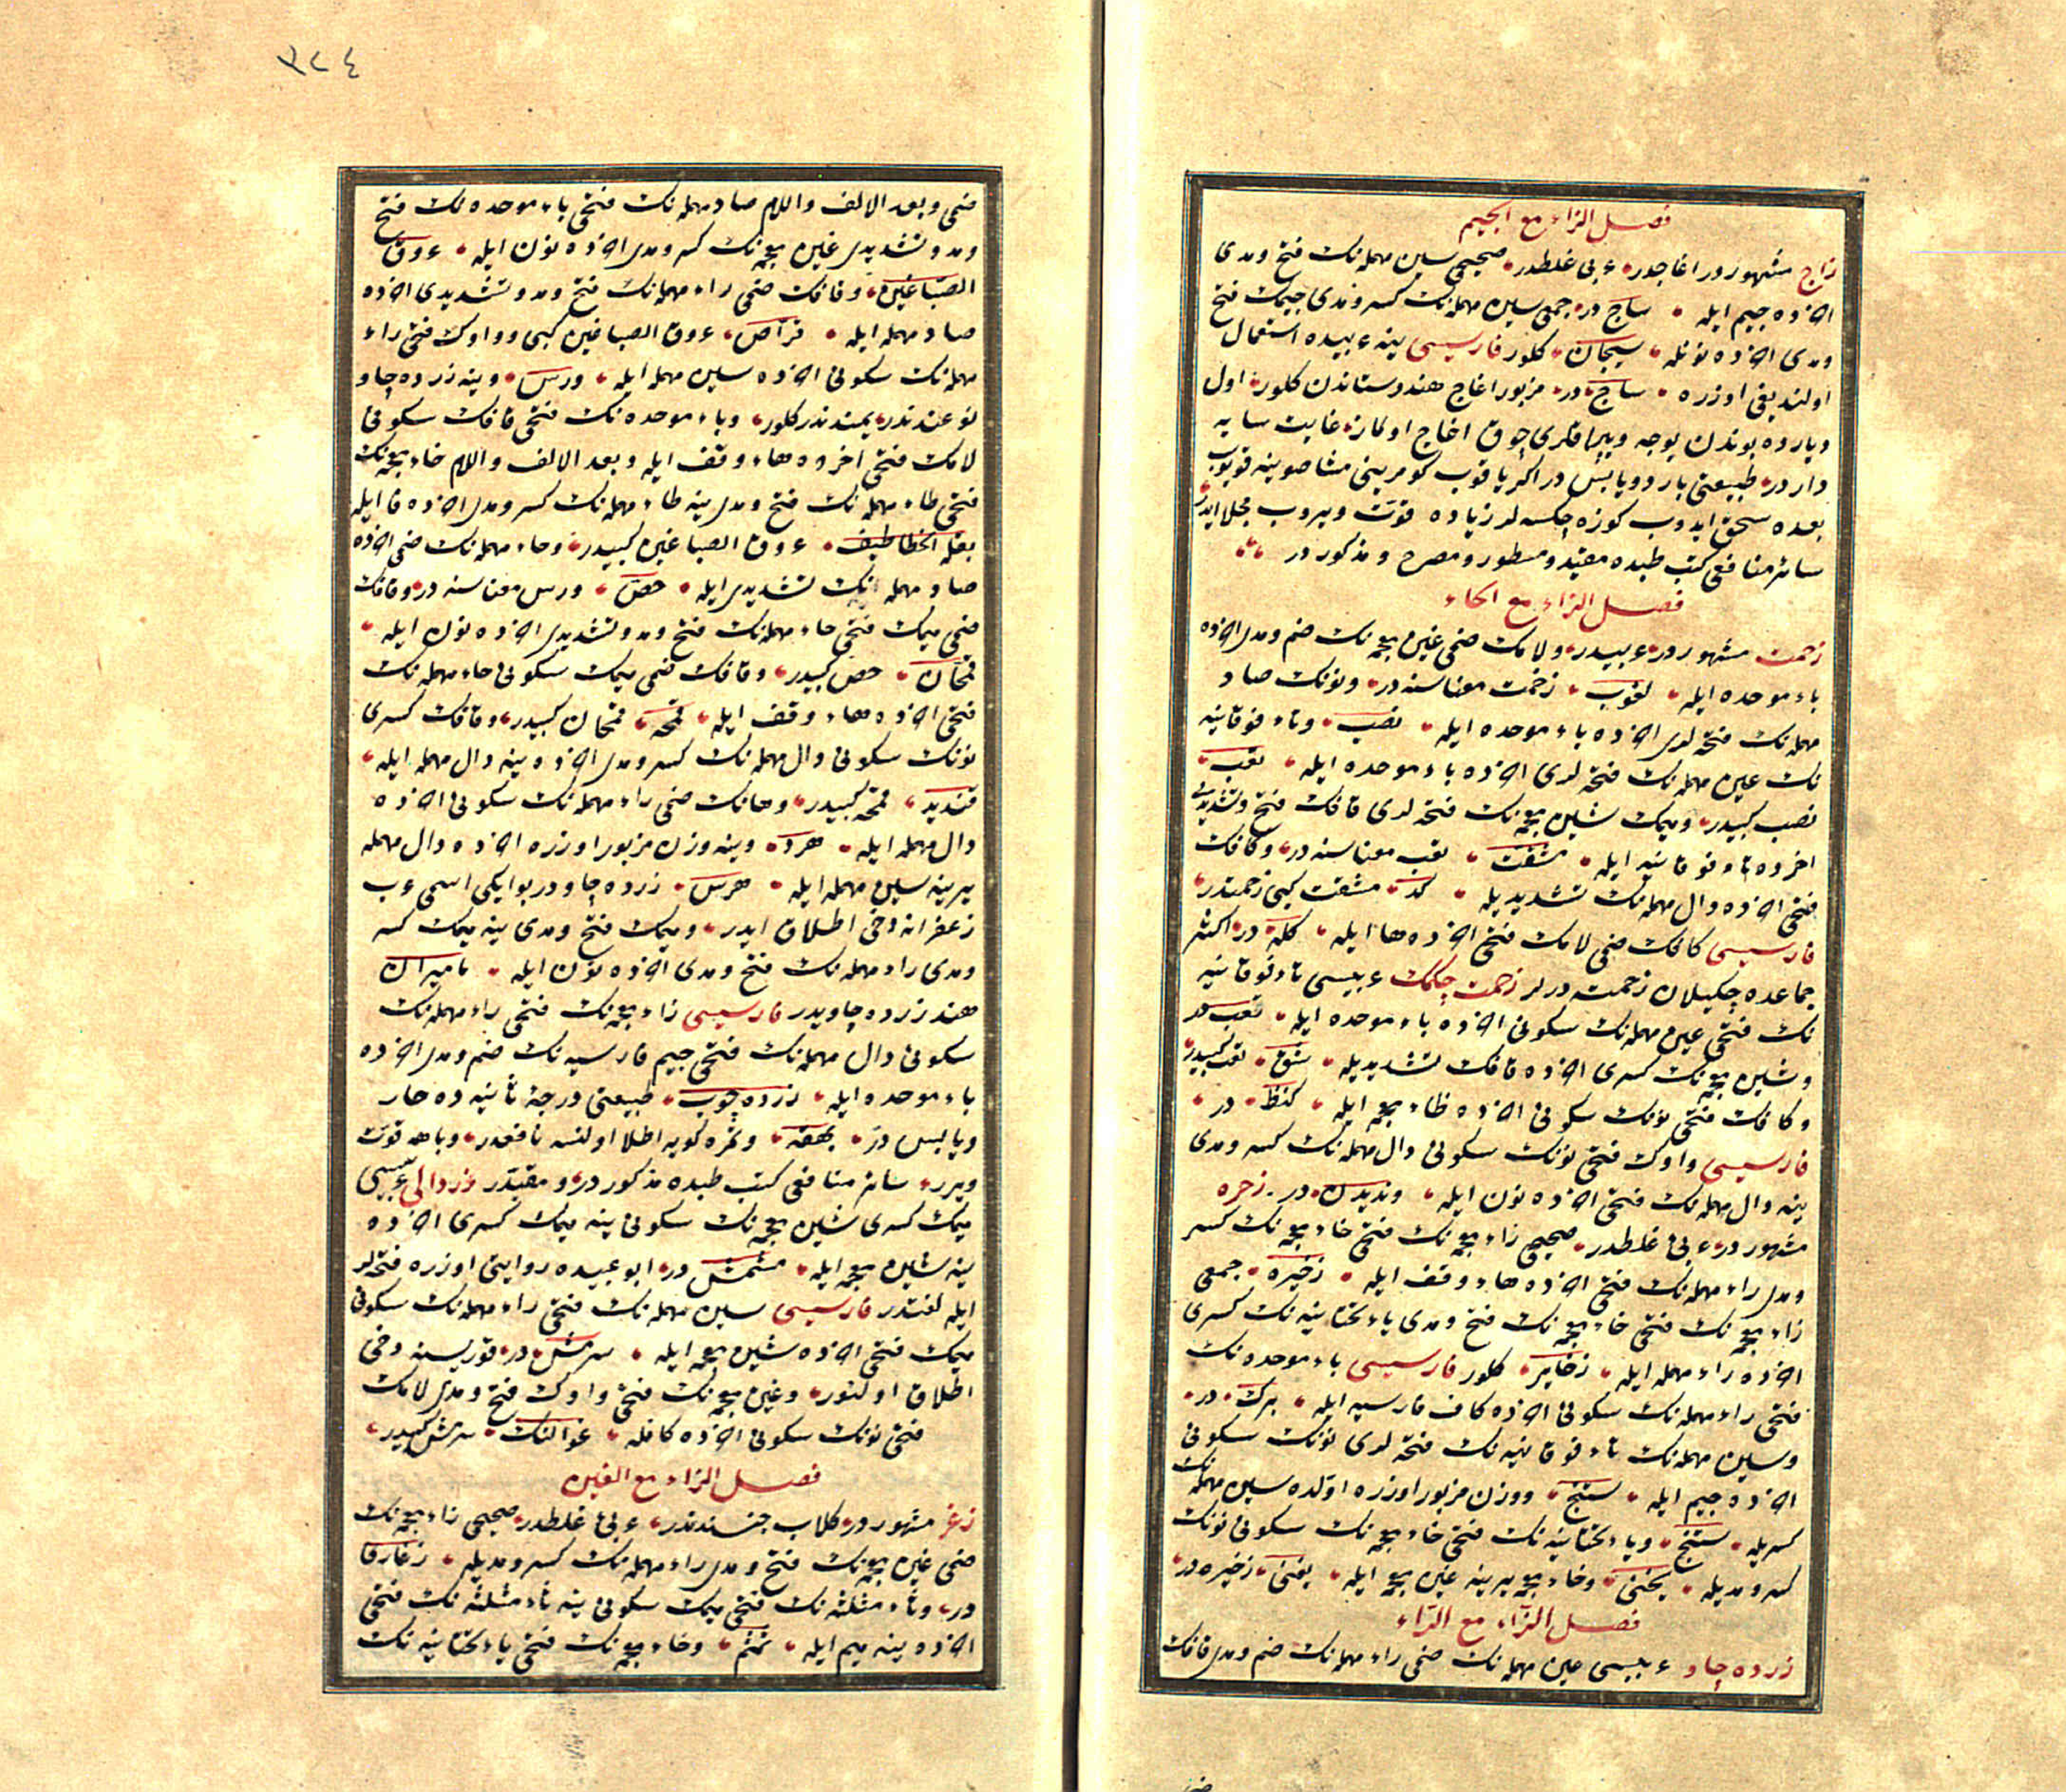 فصل الزاء مع الجيم
زاج مشهور در اغاجدر عربى غلطدر صحيحى سين مهمله نك فتح ومدى
اخرده جيم ايله ساج در جمعى سين مهمله نك كسر ومدى جيمك فتح
ومدى اخرده نونله سيجان كلور فارسيسى ينه عربيده استعمال
اولنديغى اوزره ساج در مزبور اغاج هندوستاندن كلور اول
دياروه بوندن يوجه وييراقلرى چوق اغاج اولماز غايت سايه
داردر طبيعتى بارد ويابس در اكر ياقوب كومرينى صوينه قويوب
بعده سحق ايدوب كوزه چكسه لر زياده قوت ويروب مجلا ايدر
سائر منافعى كتب طبده مقيد ومسطور ومصرح ومذكور در
فصل الزاء مع الحاء
زحمت مشهور در عربيدر ولامك ضمى غين معجمه نك ضم ومدى اخرده
باء موحده ايله لغوب زحمت معناسنه در ونونك صاد
مهمله نك فتحه لرى اخرده باء موحده ايله نصب وتاء فوقانيه
نك عين مهمله نك فتحه لرى اخرده باء موحده ايله تعب
نصب كبيدر وميمك شين معجمه نك فتحه لرى قافك فتح وتشديدى
اخرده تاء فوقانيه ايله مشقت تعب معناسنه در وكافك
فتحى اخرده دال مهمله نك تشديديله كد مشقت كبى زحمتدر
فارسيسى كافك ضمى لامك فتحى اخرده ها ايله كله در اكثر
جماعده چكيلان زحمت درلر زحمت چكمك عربيسى تاء فوقانيه
نك فتحى عين مهمله نك سكونى اخرده باء موحده ايله تعب در
وشين معجمه نك كسرى اخرده قافك تشديديله شق تعب كبيدر
وكافك فتحى نونك سكونى اخرده ظاء معجمه ايله كنظ در
فارسيسى واوك فتحى نونك سكونى دال مهمله نك كسر ومدى
ينه دال مهمله نك فتحى اخرده نون ايله ونديدن در زخره
مشهور در عربى غلطدر صحيحى زاء معجمه نك فتحى خاء معجمه نك كسر
ومدى راء مهمله نك فتحى اخرده هاء وقف ايله زخيره جمعى
زاء معجمه نك فتحى خاء معجمه نك فتح ومدى ياء تحتانيه نك كسرى
اخرده راء مهمله ايله زخاير كلور فارسيسى باء موحده نك
فتحى راء مهمله نك سكونى اخرده كاف فارسيه ايله برك در
وسين مهمله نك تاء فوقانيه نك فتحه لرى نونك سكونى
اخرده جيم ايله ستنج ووزن مزبور اوزره اولده سين مهمله نك
كسريله ستنج وياء تحتانيه نك فتحى خاء معجمه نك سكونى نونك
كسر ومديله يخنى وخاء معجمه يرينه غين معجمه ايله يغنى زخيره در
فصل الزاء مع الراء
زرده چاو عربيسى عين مهمله نك ضمى راء مهمله نك ضم ومدى قافك
٣٢٤
ضمى وبعد الالف واللام صاد مهمله نك فتحى باء موحده نك فتح
ومد وتشديدى غين معجمه نك كسر ومدى اخرده نون ايله عروق
الصباغين وقافك ضمى راء مهمله نك فتح ومد وتشديدى اخرده
صاد مهمله ايله قراص عروق الصباغين كبى وواوك فتحى راء
مهمله نك سكونى اخرده سين مهمله ايله ورس وينه زرده چاو
نوعندندر يمندندر كلور وباء موحده نك فتحى قافك سكونى
لامك فتحى اخرده هاء وقف ايله وبعد الالف واللام خاء معجمه نك
فتحى طاء مهمله نك فتح ومدى ينه طاء مهمله نك كسر ومدى اخرده فا ايله
بقلة الخطاطيف عروق الصباغين كبيدر وحاء مهمله نك ضمى اخرده
صاد مهمله نك تشديدى ايله حص ورس معناسنه در وقافك
ضمى ميمك فتحى حاء مهمله نك فتح ومد وتشديدى اخرده نون ايله
قمحان حص كبيدر وقافك ضمى ميمك سكونى حاء مهمله نك
فتحى اخرده هاء وقف ايله قمحه قمحان كبيدر وقافك كسرى
نونك سكونى دال مهمله نك كسر ومدى اخرده ينه دال مهمله ايله
قنديد قمحه كبيدر وهانك ضمى راء مهمله نك سكونى اخرده
دال مهمله ايله هرد وينه وزن مزبور اوزره اخرده دال مهمله
يرينه سين مهمله ايله هرس زرده چاودر بو ايكى اسمى عرب
زعفرانه دخى اطلاق ايدر وميمك فتح ومدى ينه ميمك كسر
ومدى راء مهمله نك فتح ومدى اخرده نون ايله ماميران
هند زرده چاويدر فارسيسى زاء معجمه نك فتحى راء مهمله نك
سكونى دال مهمله نك فتحى جيم فارسيه نك ضم ومدى اخرده
باء موحده ايله زرده چوب طبيعتى درجه ثانيه ده حار
ويابس در بهقه ونمره كويه اطلا اولنسه نافعدر وباهه قوت
ويرر سائر منافعى كتب طبده مذكور در ومقيددر زردالى عربيسى
ميمك كسرى شين معجمه نك سكونى ينه ميمك كسرى اخرده
ينه شين معجمه ايله مشمش در ابو عبيده روايتى اوزره فتحه لر
ايله لغتدر فارسيسى سين مهمله نك فتحى راء مهمله نك سكونى
ميمك فتحى اخرده شين معجمه ايله سرمش در قوريسنه دخى
اطلاق اولنور وغين معجمه نك فتحى واوك فتح ومدى لامك
فتحى نونك سكونى اخرده كافله غوالنك سرمش كبيدر
فصل الزاء مع الغين
زغر مشهور در كلاب جنسندندر عربى غلطدر صحيحى زاء معجمه نك
ضمى غين معجمه نك فتح ومدى راء مهمله نك كسر ومديله
در وثاء مثلثه نك فتحى ميمك سكونى ينه ثاء مثلثه نك فتحى
اخرده ينه ميم ايله ثمثم وخاء معجمه نك فتحى ياء تحتانيه نك